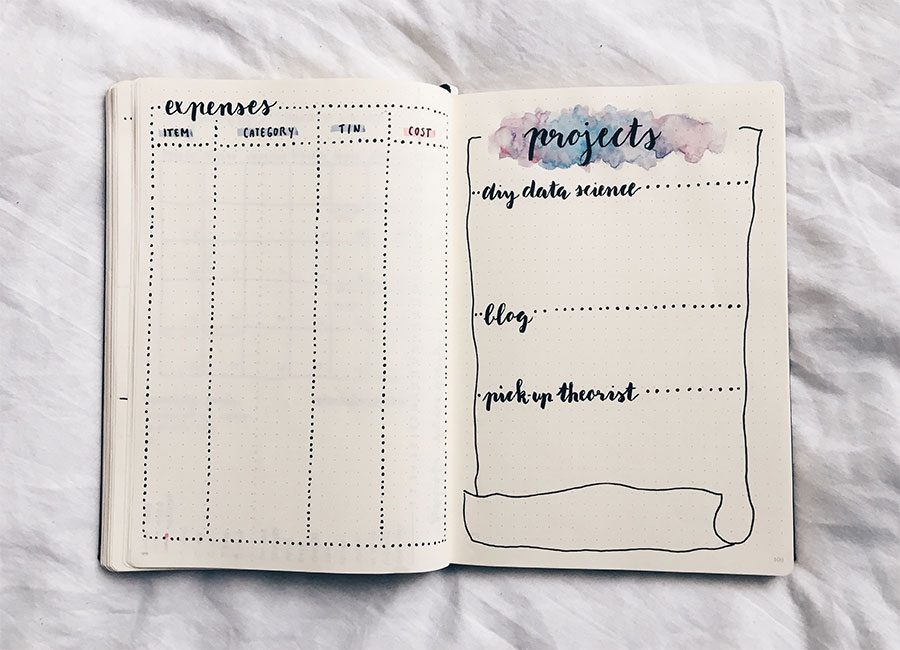 expenses
ITEM CATEGORY TIN COST
projects
diy data science
blog
pick-up theorist